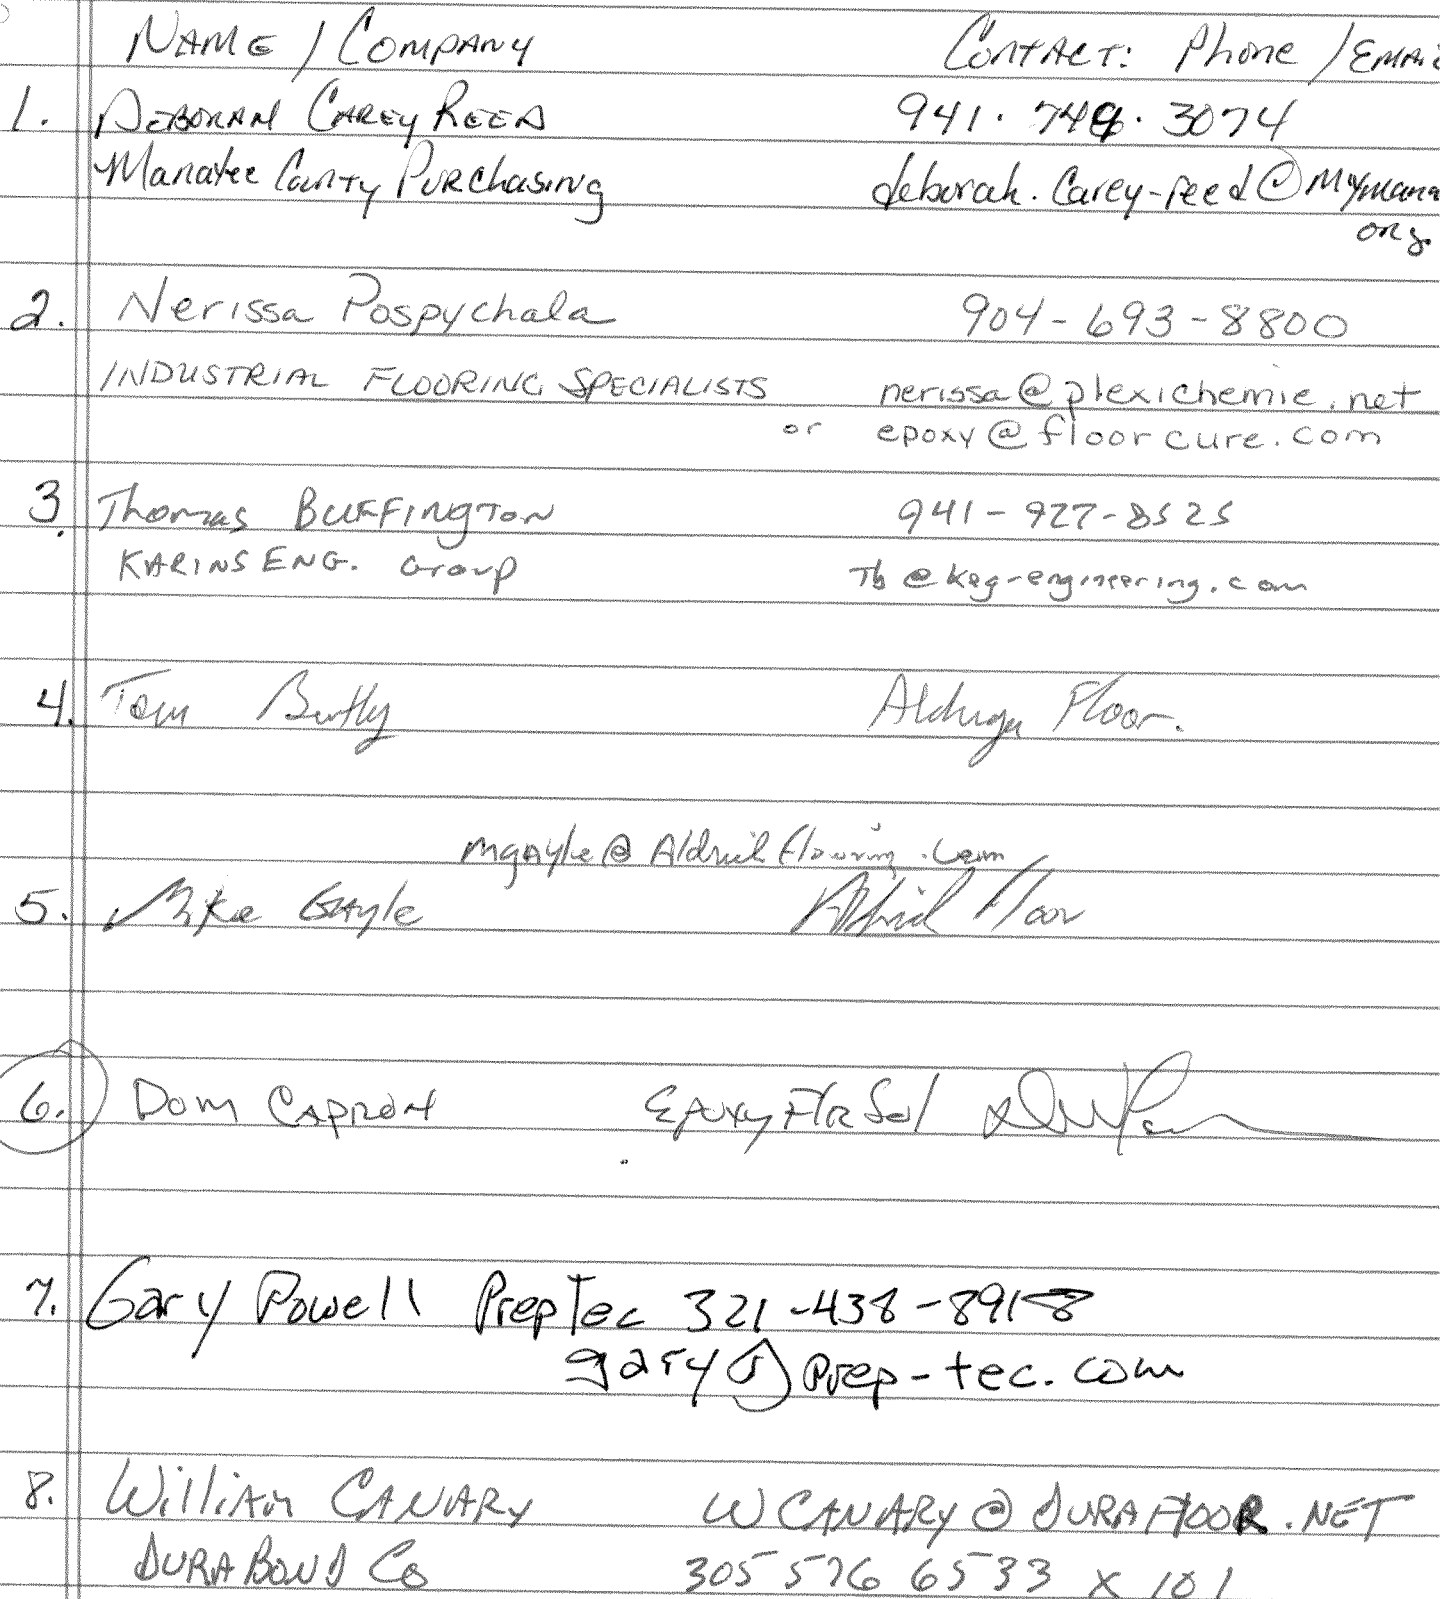 NAME / COMPANY CONTACT: Phone / EMAI
1. DEBORAH CAREY REED 941. 749. 3074
Manatee County PURCHASING deborah.carey-reed@Mymana
org.
2. Nerissa Pospychala 904-693-8800
INDUSTRIAL FLOORING SPECIALISTS nerissa@plexichemie.net
or epoxy@floorcure.com
3. Thomas BUFFINGTON 941-927-8525
KARINS ENG. Group Tb@keg-engineering.com
4. Tom Floor.
mgayle@Aldrichflooring.com
5. Mike Gayle Aldrich Floor
6. Dom CAPRON EPOXY FLR Sol
7. Gary Powell PrepTec 321-438-8918
gary@prep-tec.com
8. William CANARY WCANARY@DURAFLOOR.NET
DURABOND Co 305 576 6533 x 101